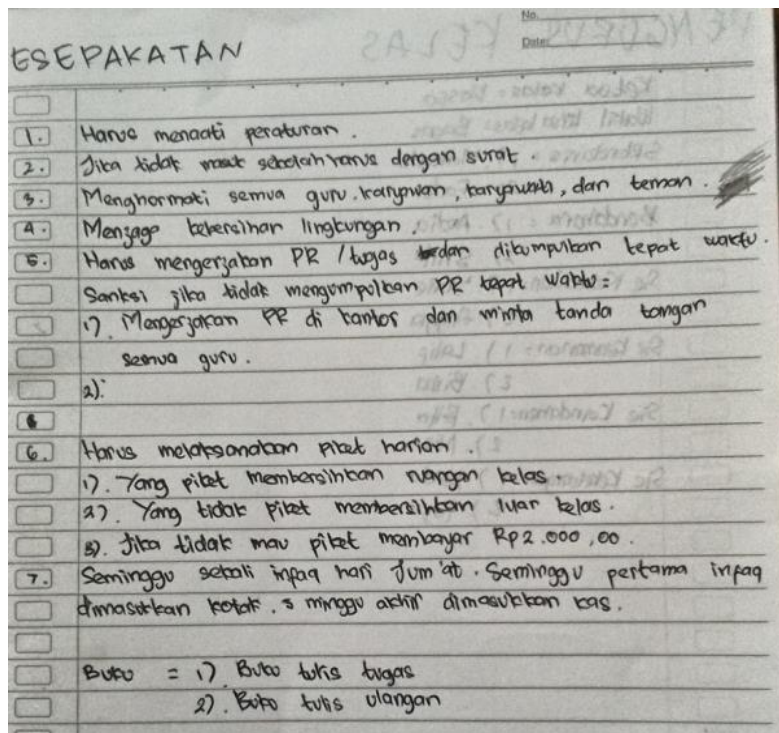 No.
Date:
ESEPAKATAN
1. Harus menaati peraturan.
2. Jika tidak masuk sekolah harus dengan surat.
3. Menghormati semua guru, karyawan, karyawati, dan teman.
4. Menjaga kebersihan lingkungan.
5. Harus mengerjakan PR / tugas dan dikumpulkan tepat waktu.
Sanksi jika tidak mengumpulkan PR tepat waktu:
1). Mengerjakan PR di kantor dan minta tanda tangan
semua guru.
2).
6. Harus melaksanakan piket harian.
1). Yang piket membersihkan ruangan kelas.
2). Yang tidak piket membersihkan luar kelas.
3). Jika tidak mau piket membayar Rp2.000,00.
7. Seminggu sekali infaq hari Jum'at. Seminggu pertama infaq
dimasukkan kotak. 3 minggu akhir dimasukkan kas.
Buku = 1) Buku tulis tugas
2). Buku tulis ulangan